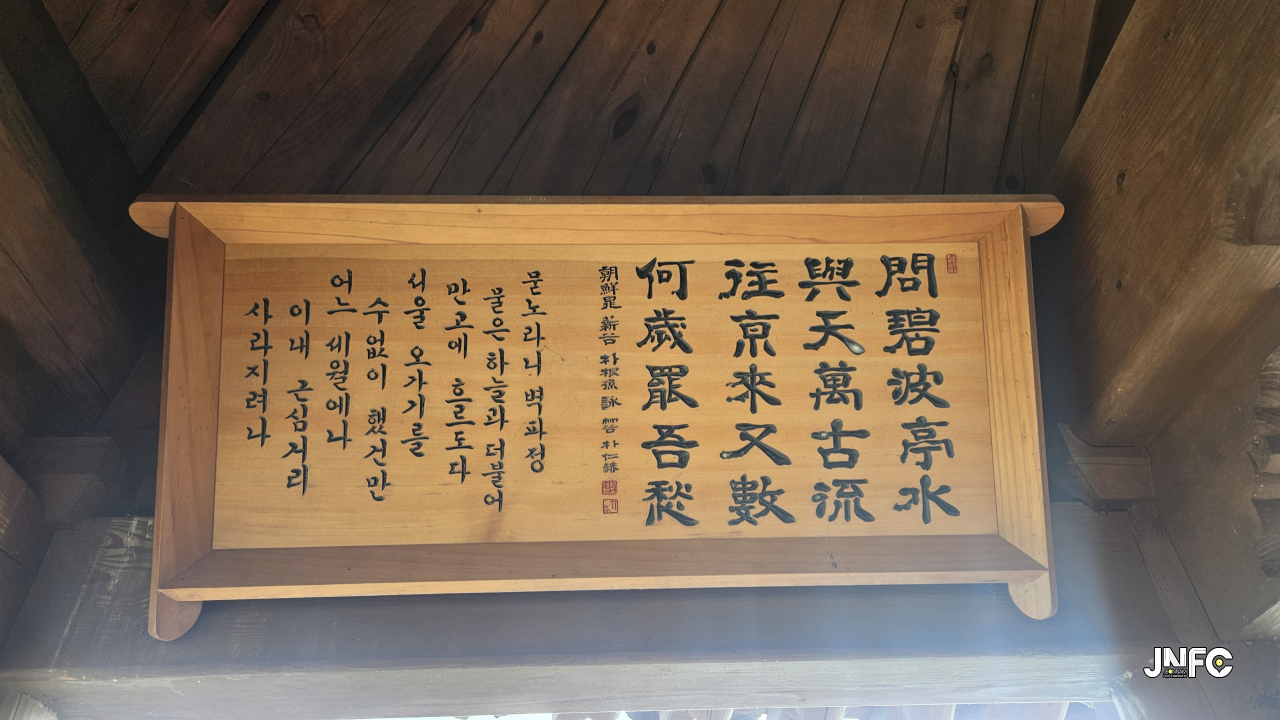 問碧波亭水
與天萬古流
往京來又數
何歲罷吾愁
묻노라니 벽파정
물은 하늘과 더불어
만고에 흐르도다
서울 오가기를
수없이 했건만
어느 세월에나
이내 근심거리
사라지려나
JNFC